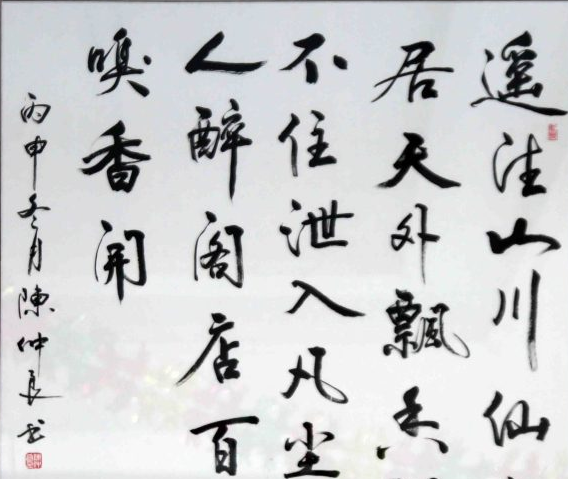 遥山川仙
居天外飄香
不住泄入凡尘
人醉阁店百
嗅香開
丙申冬月陳仲良书